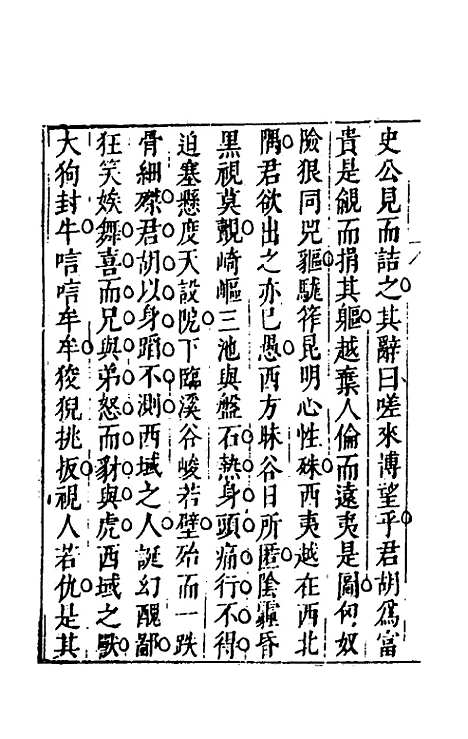 史公見而詰之其辭曰嗟來博望乎君胡爲富
貴是覦而捐其軀越棄人倫而遠夷是圖匈奴
險狠同兕驅駹筰昆明心性殊西夷越在西北
隅君欲出之亦已愚西方昧谷日所匿陰霾昏
黑視莫覩崎嶇三池與盤石熱身頭痛行不得
迫塞懸度天設阨下臨溪谷峻若壁殆而一跌
骨細磔君胡以身蹈不測西域之人誕幻醜鄙
狂笑娭舞喜而兄與弟怒而豺與虎西域之獸
大狗封牛唁唁牟牟狻猊挑扳視人若仇是其